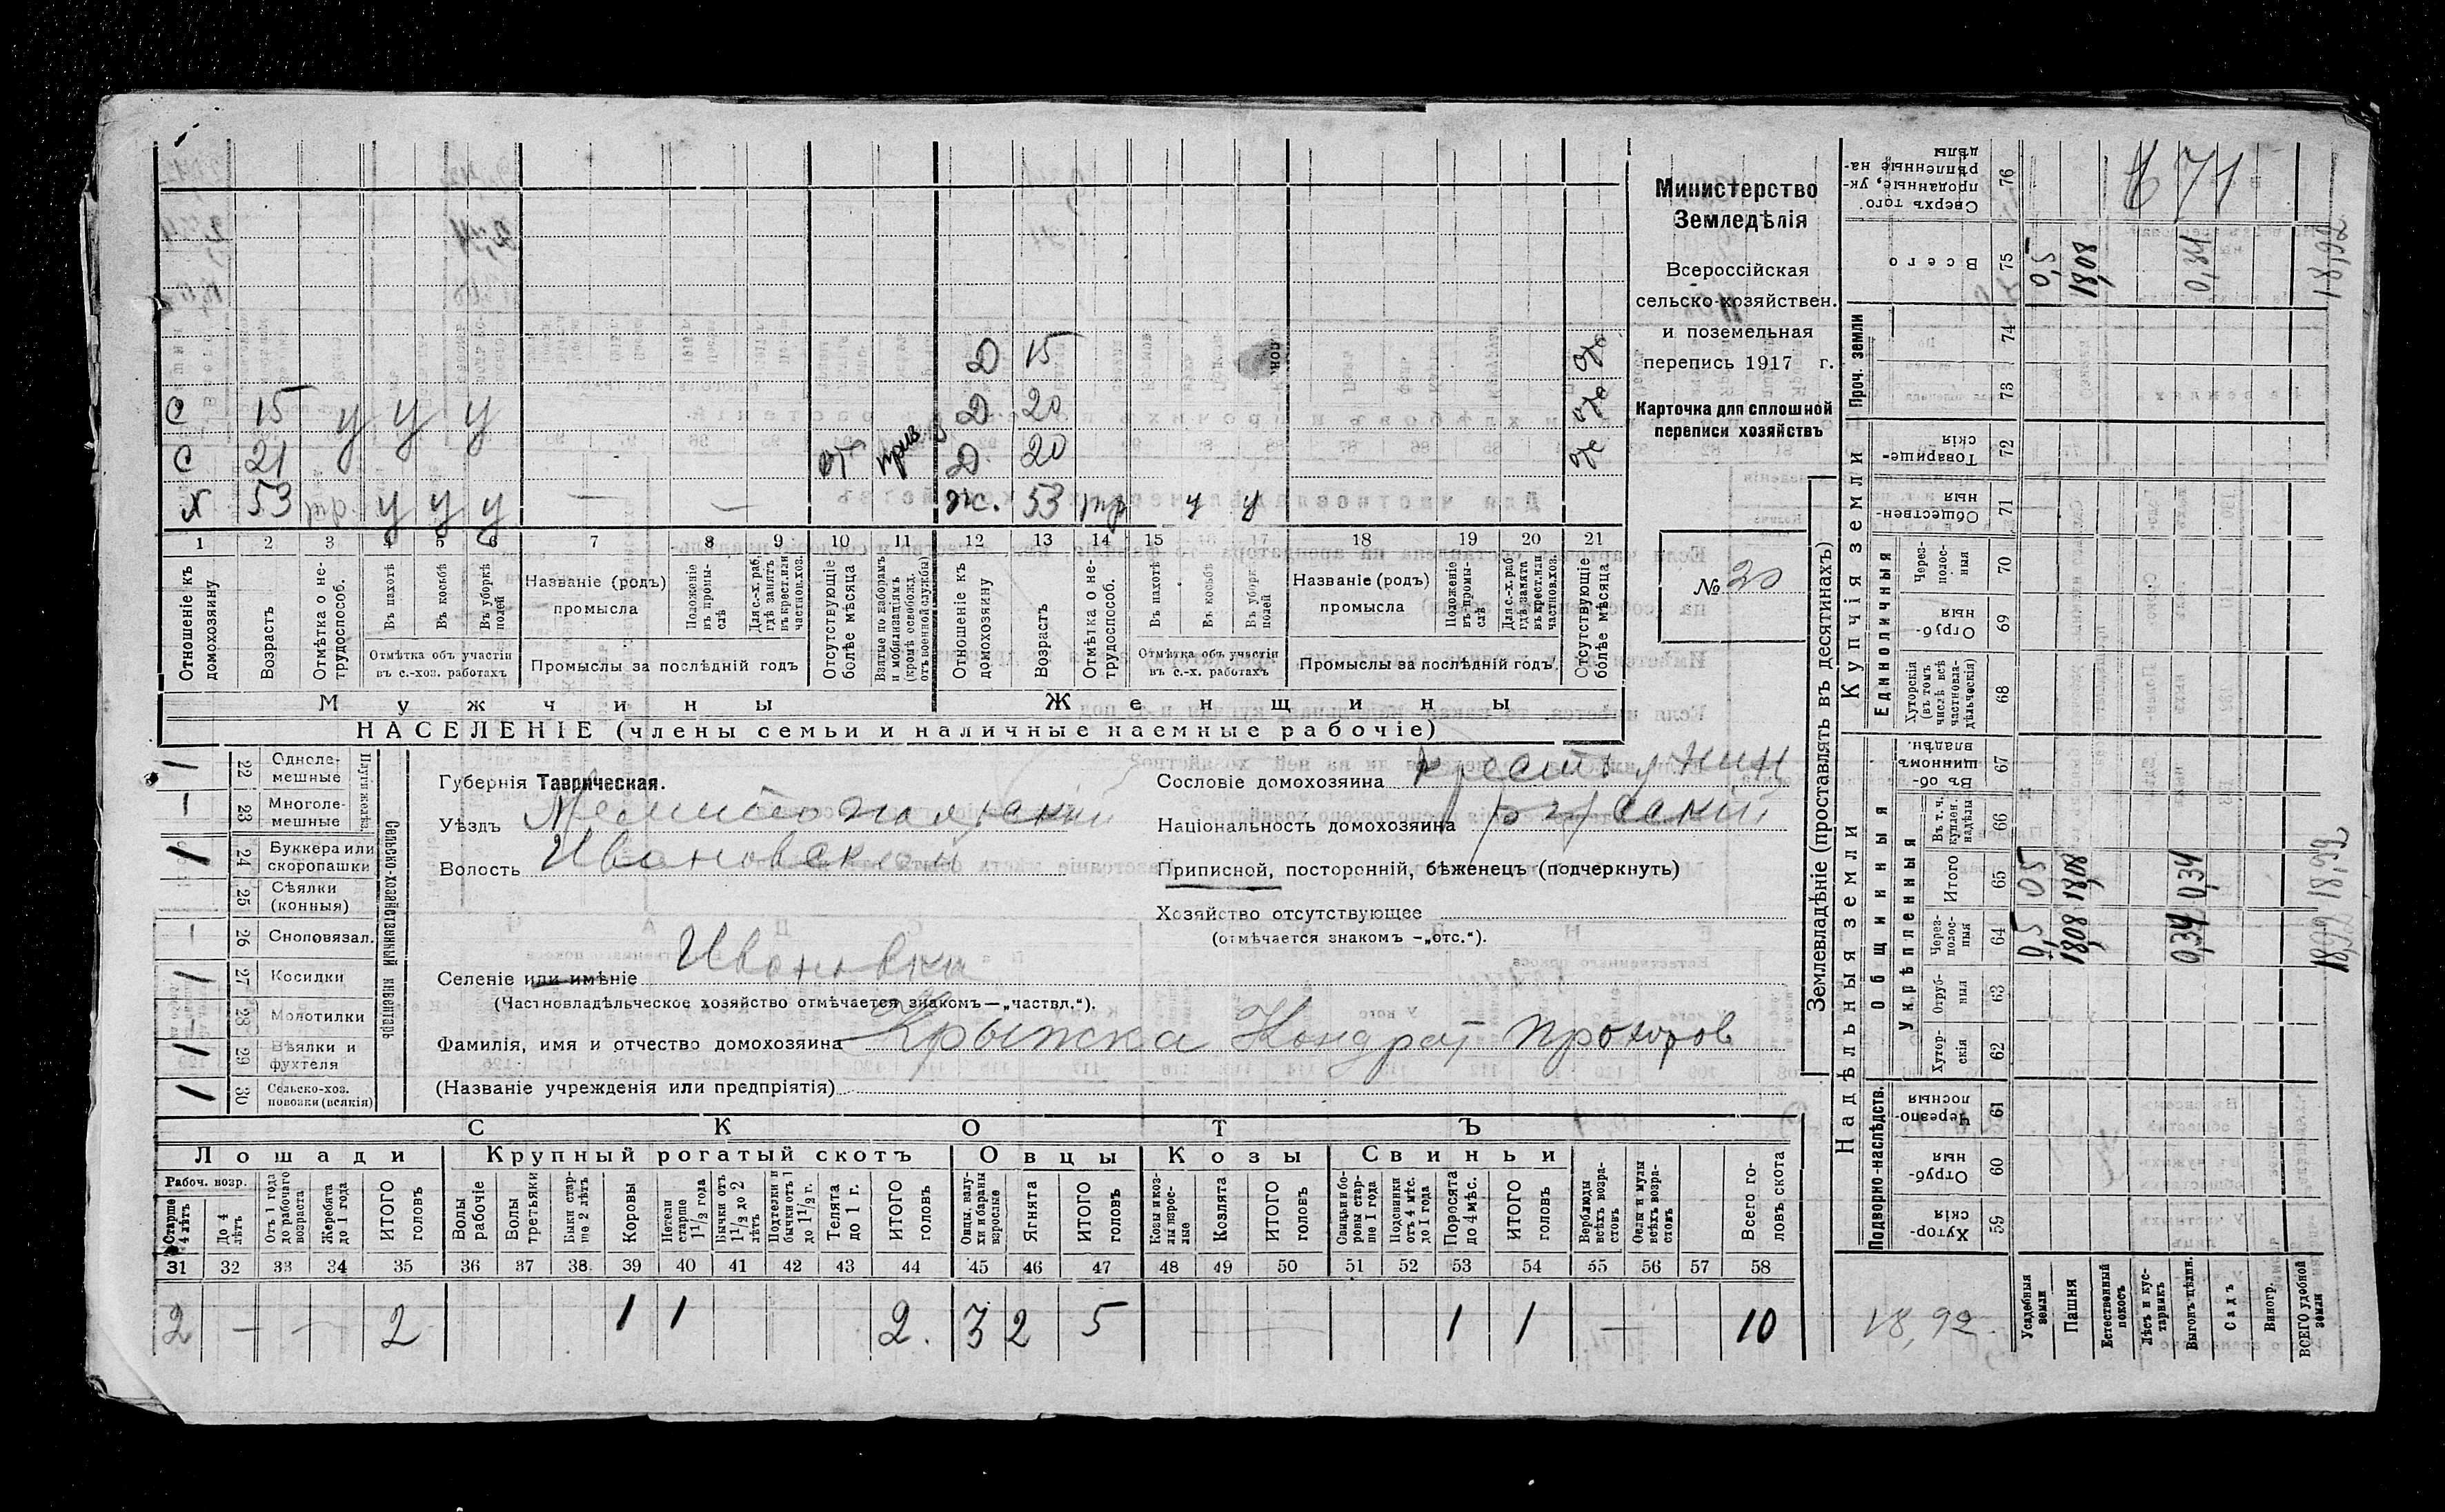 С 15 у у у Д 15
С 21 от приз Д 20 от
Х 53 у у у — — Д 20 от
ж. 53 тр у у
1 2 3 4 5 6 7 8 9 10 11 12 13 14 15 16 17 18 19 20 21
Отношеніе къ домохозяину
Возрастъ
Отмѣтка о нетрудоспособ.
Въ пахотѣ
Въ косьбѣ
Въ уборкѣ полей
Отмѣтка объ участіи въ с.-хоз. работахъ
Названіе (родъ) промысла
Положеніе въ промыслѣ
Для с.-х. раб. гдѣ занятъ въ крест. или частнов. хоз.
Промыслы за послѣдній годъ
Отсутствующіе болѣе мѣсяца
Взятые по наборамъ и мобилизаціямъ (кромѣ освобожд. отъ военной службы)
Отношеніе къ домохозяину
Возрастъ
Отмѣтка о нетрудоспособ.
Въ пахотѣ
Въ косьбѣ
Въ уборк полей
Отмѣтка объ участіи въ с.-х. работахъ
Названіе (родъ) промысла
Положеніе въ промыслѣ
Для с.-х. раб. гдѣ занята въ крест. или частнов. хоз.
Промыслы за послѣдній годъ.
Отсутствующіе болѣе мѣсяца
Мужчины Женщины
НАСЕЛЕНІЕ (члены семьи и наличные наемные рабочіе)
Министерство
Земледѣлія
Всероссійская
сельско-хозяйствен.
и поземельная
перепись 1917 г.
Карточка для сплошной
переписи хозяйствъ
№ 20
1 22 Однолемешные
— 23 Многолемешные
1 24 Буккера или скоропашки
25 Сѣялки (конныя)
— 26 Сноповязал.
1 27 Косилки
— 28 Молотилки
1 29 Вѣялки и фухтеля
1 30 Сельско-хоз. повозки (всякія)
Сельско-хозяйственный инвентарь
Губернія Таврическая.
Уѣздъ Мелитопольский
Волость Ивановская
Селеніе или имѣніе Ивановка
(Частновладѣльческое хозяйство отмѣчается знакомъ — „частвл.“).
Фамилія, имя и отчество домохозяина Крыжка Кондрат Прохоров
(Названіе учрежденія или предпріятія)
Сословіе домохозяина крестьянин
Національность домохозяина русский
Приписной, посторонній, бѣженецъ (подчеркнуть)
Хозяйство отсутствующее
(отмѣчается знакомъ —„отс.“).
СКОТЪ
Лошади Крупный рогатый скотъ Овцы Козы Свиньи
Рабоч. возр.
Старше 4 лѣтъ
До 4 лѣтъ
Отъ 1 года до рабочаго возраста
Жеребята до 1 года
ИТОГО головъ
Волы рабочіе
Волы третьяки
Быки старше 2 лѣтъ
Коровы
Нетели старше 1½ года
Бычки отъ 1½ до 2 лѣтъ
Подтелки и бычки отъ 1 до 1½ г.
Телята до 1 г.
ИТОГО головъ
Овцы, валухи и бараны взрослые
Ягнята
ИТОГО головъ
Козы и козлы взрослые
Козлята
ИТОГО головъ
Свиньи и боровы старше 1 года
Подсвинки отъ 4 мѣс. до 1 года
Поросята до 4 мѣс.
ИТОГО головъ
Верблюды всѣхъ возрастовъ
Ослы и мулы всѣхъ возрастовъ
Всего головъ скота
31 32 33 34 35 36 37 38 39 40 41 42 43 44 45 46 47 48 49 50 51 52 53 54 55 56 57 58
2 — — 2 1 1 2. 3 2 5 — — 1 1 — 10
Землевладѣніе (проставлять въ десятинахъ)
Надѣльныя земли
Купчія земли
Проч. земли
Подворно-наслѣдств.
Общинныя
Укрѣпленныя
Единоличныя
Хуторскія 59
Отрубныя 60
Черезполосныя 61
Хуторскія 62
Отрубныя 63
Черезполосныя 64 0,5 18,08 0,34 18,92
Итого 65 0,5 18,08 0,34 18,92
Въ т. ч. куплен. надѣлы 66
Въ общинномъ владѣн. 67
Хуторскія (въ томъ числѣ всѣ частновладѣльческія) 68
Отрубныя 69
Черезполосныя 70
Общественныя 71
Товарищескія 72
73
74
Всего 75 0,5 18,08 0,34 18,92
Сверхъ того проданные, укрѣпленные надѣлы 76
71
Усадебныя земли
Пашня
Естественный покосъ
Лѣсъ и кустарникъ
Выгонъ цѣлин.
Садъ
Виногр.
ВСЕГО удобной земли
18,92